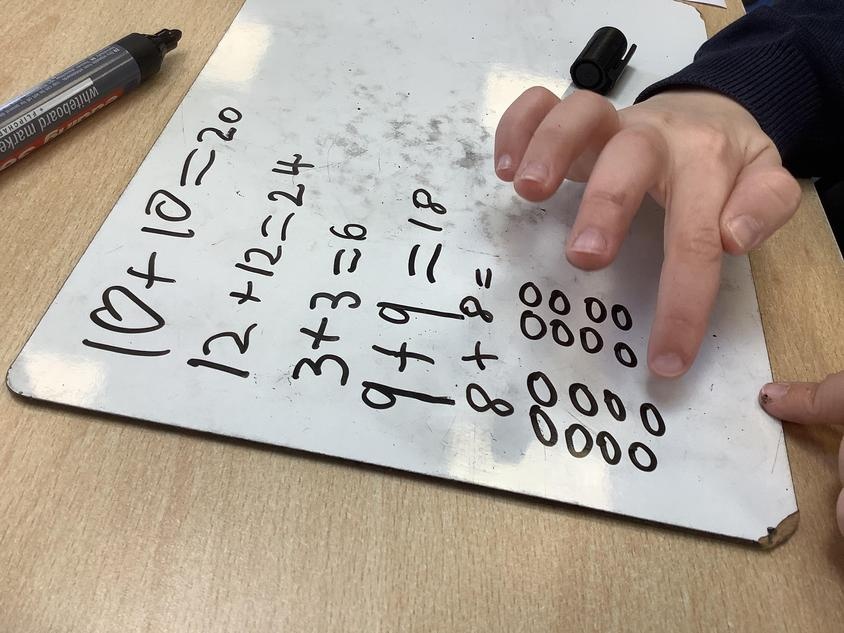 10 + 10 = 20
12 + 12 = 24
3 + 3 = 6
9 + 9 = 18
8 + 8 =
0000
0000
0000
0000
edding
whiteboard marke